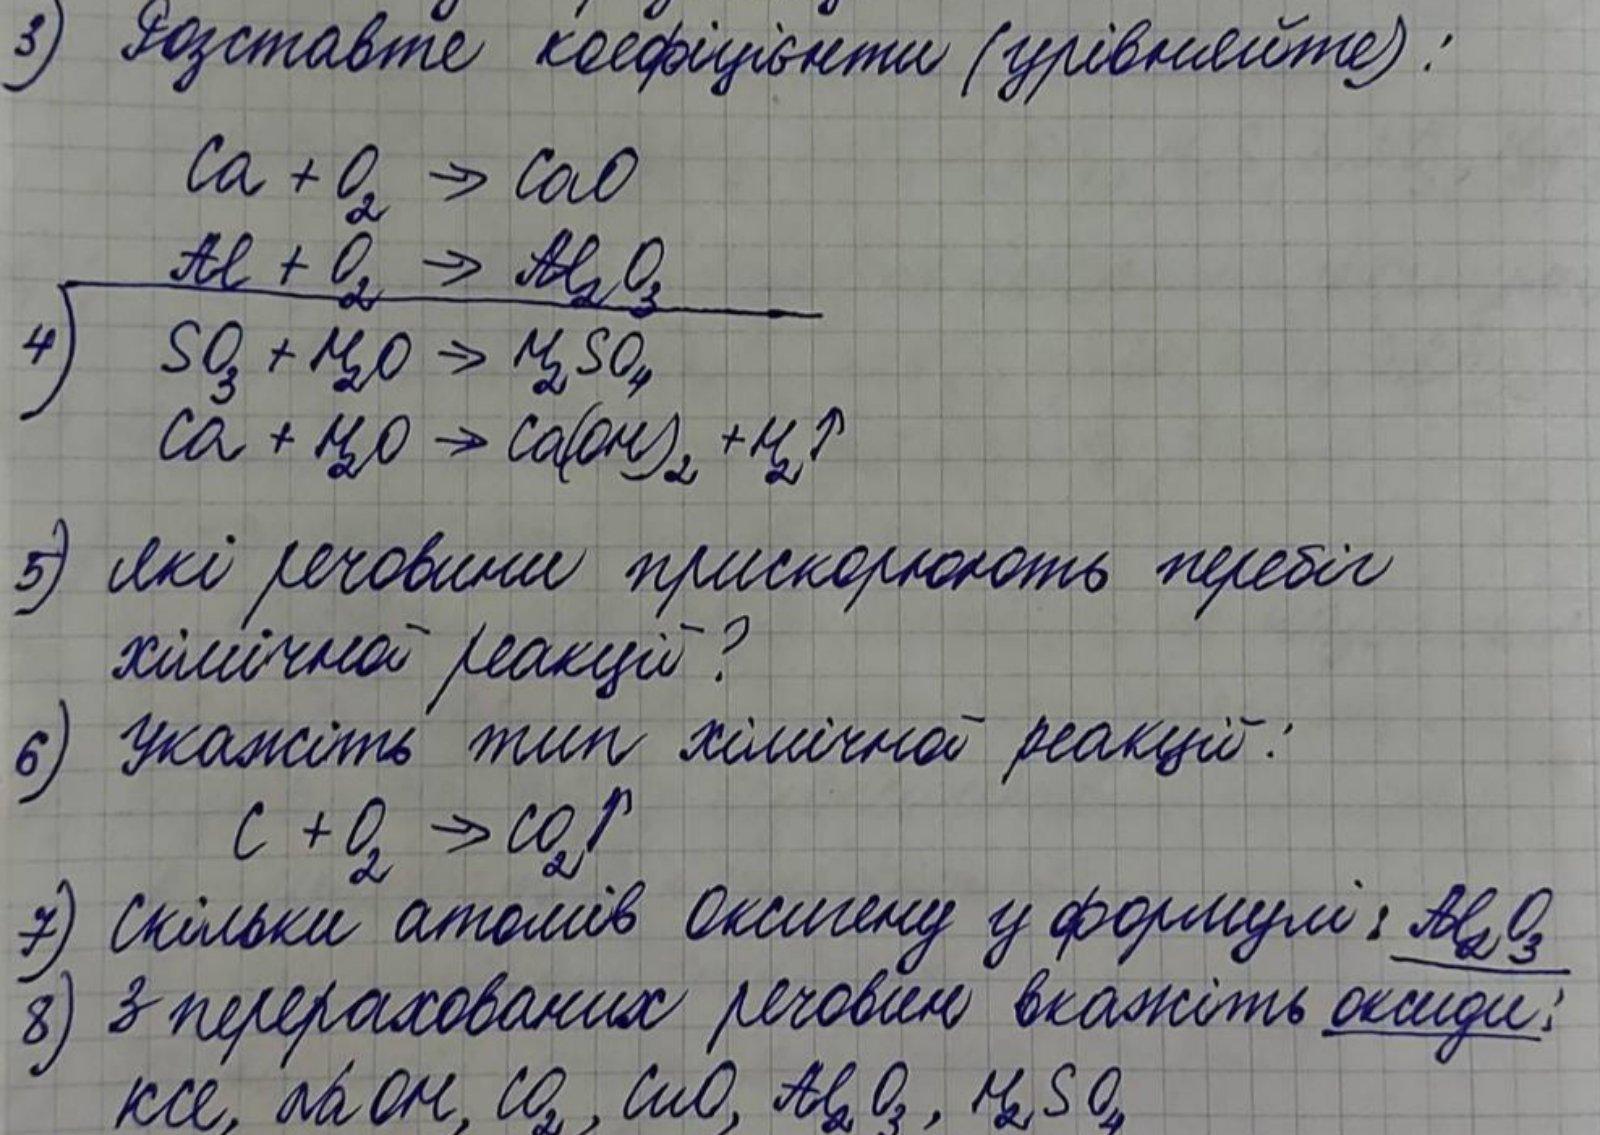 3) Розставте коефіцієнти (урівняйте):
Ca + O₂ → CaO
Al + O₂ → Al₂O₃
4) SO₃ + H₂O → H₂SO₄
Ca + H₂O → Ca(OH)₂ + H₂↑
5) Які речовини прискорюють перебіг
хімічної реакції?
6) Укажіть тип хімічної реакції:
C + O₂ → CO₂↑
7) Скільки атомів Оксигену у формулі: Al₂O₃
8) З перерахованих речовин вкажіть оксиди:
KCl, NaOH, CO₂, CuO, Al₂O₃, H₂SO₄